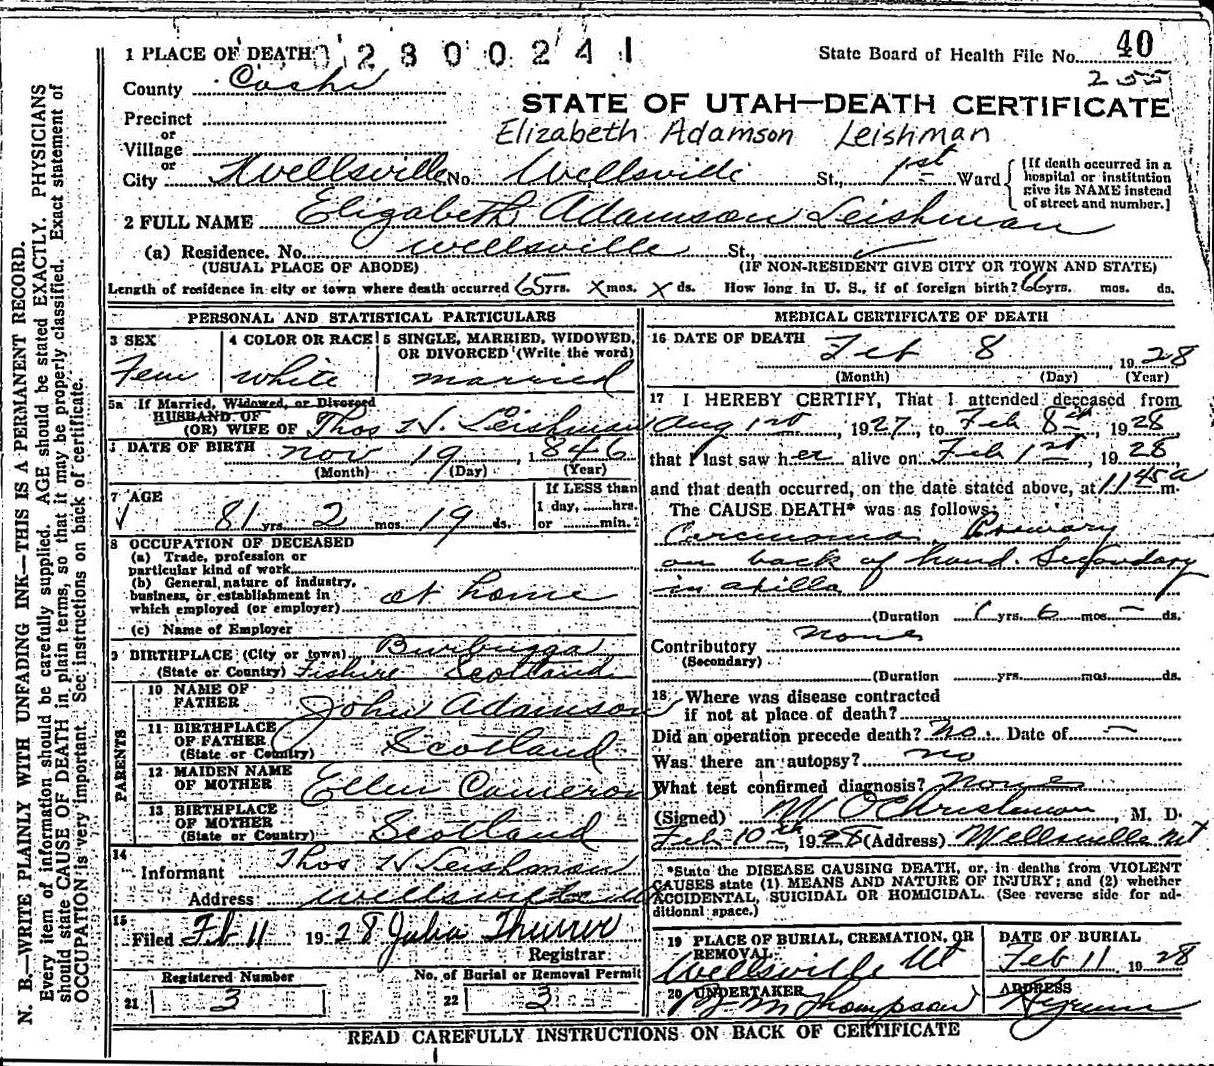 1 PLACE OF DEATH 0 2 8 0 0 2 4 1
State Board of Health File No. 40
255
County Cache
STATE OF UTAH—DEATH CERTIFICATE
Precinct
Elizabeth Adamson Leishman
or
Village
or
City Wellsville No. Wellsville St., 1st Ward
[If death occurred in a hospital or institution give its NAME instead of street and number.]
2 FULL NAME Elizabeth Adamson Leishman
(a) Residence. No. Wellsville St.,
(USUAL PLACE OF ABODE) (IF NON-RESIDENT GIVE CITY OR TOWN AND STATE)
Length of residence in city or town where death occurred 65 yrs. x mos. x ds. How long in U. S., if of foreign birth? 66 yrs. mos. ds.
PERSONAL AND STATISTICAL PARTICULARS
3 SEX 4 COLOR OR RACE 5 SINGLE, MARRIED, WIDOWED,
OR DIVORCED (Write the word)
Fem white married
5a If Married, Widowed, or Divorced
HUSBAND OF
(OR) WIFE OF Thos H. Leishman
DATE OF BIRTH Nov 19, 1846
(Month) (Day) (Year)
7 AGE If LESS than
1 day, hrs.
81 yrs. 2 mos. 19 ds. or min.
8 OCCUPATION OF DECEASED
(a) Trade, profession or
particular kind of work
(b) General nature of industry,
business, or establishment in
which employed (or employer) at home
(c) Name of Employer
9 BIRTHPLACE (City or town)
(State or Country) Scotland
PARENTS
10 NAME OF
FATHER John Adamson
11 BIRTHPLACE
OF FATHER
(State or Country) Scotland
12 MAIDEN NAME
OF MOTHER Ellen Cameron
13 BIRTHPLACE
OF MOTHER
(State or Country) Scotland
14
Informant Thos H Leishman
Address Wellsville
15
Filed Feb 11 1928 Julia
Registrar
Registered Number No. of Burial or Removal Permit
21 3 22 3
MEDICAL CERTIFICATE OF DEATH
16 DATE OF DEATH
Feb 8, 1928
(Month) (Day) (Year)
17 I HEREBY CERTIFY, That I attended deceased from
Aug 1st, 1927, to Feb 8th, 1928
that I last saw her alive on Feb 1st, 1928
and that death occurred, on the date stated above, at 11 45 a m.
The CAUSE DEATH* was as follows:
Carcinoma. Primary
on back of hand. Secondary
in axilla
(Duration 1 yrs. 6 mos. – ds.
Contributory none
(Secondary)
(Duration yrs. mos. ds.
18 Where was disease contracted
if not at place of death?
Did an operation precede death? No. Date of –
Was there an autopsy? no
What test confirmed diagnosis? none
(Signed) M. D.
Feb 10th, 1928 (Address) Wellsville Ut
*State the DISEASE CAUSING DEATH, or, in deaths from VIOLENT
CAUSES state (1) MEANS AND NATURE OF INJURY; and (2) whether
ACCIDENTAL, SUICIDAL OR HOMICIDAL. (See reverse side for ad-
ditional space.)
19 PLACE OF BURIAL, CREMATION, OR
REMOVAL
Wellsville Ut
DATE OF BURIAL
Feb 11 1928
20 UNDERTAKER
Thompson
ADDRESS
Hyrum
READ CAREFULLY INSTRUCTIONS ON BACK OF CERTIFICATE
N. B.—WRITE PLAINLY WITH UNFADING INK—THIS IS A PERMANENT RECORD.
Every item of information should be carefully supplied. AGE should be stated EXACTLY. PHYSICIANS
should state CAUSE OF DEATH in plain terms, so that it may be properly classified. Exact statement of
OCCUPATION is very important. See instructions on back of certificate.